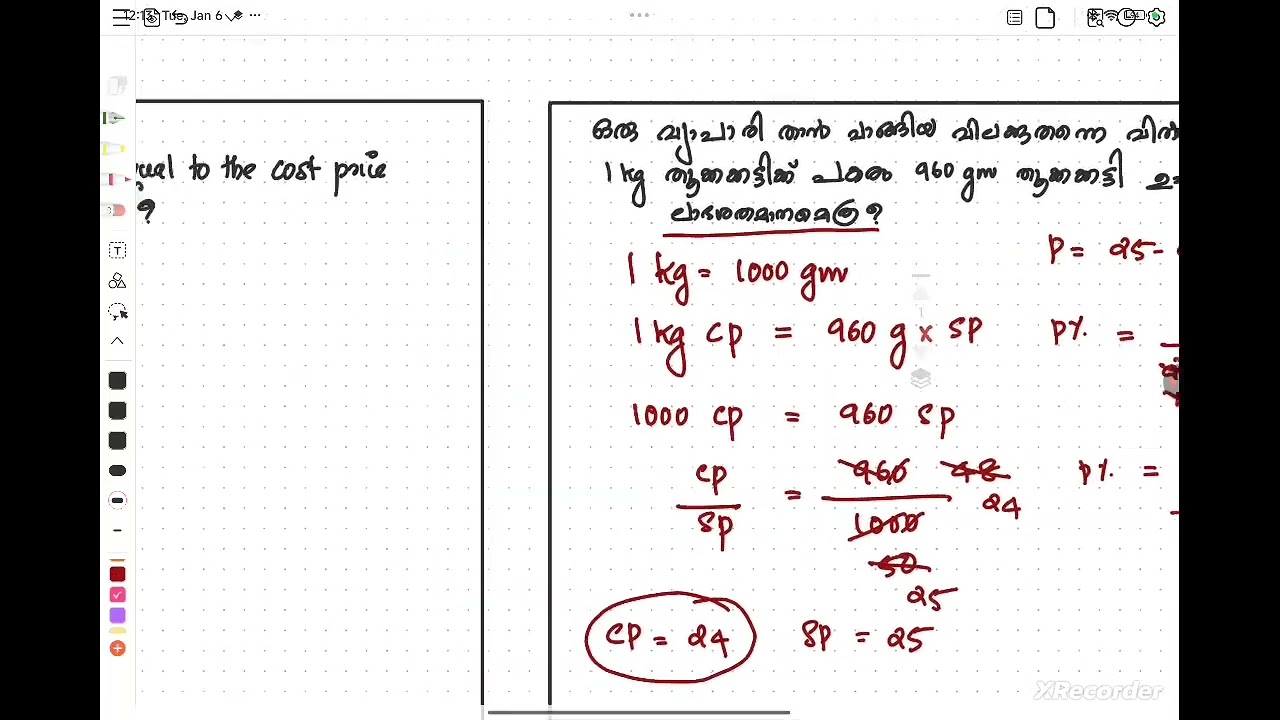 Tue, Jan 6
ual to the cost price
?
ഒരു വ്യാപാരി താൻ വാങ്ങിയ വിലക്കുതന്നെ
1 kg തൂക്കക്കട്ടിക്ക് പകരം 960 gm തൂക്കക്കട്ടി
ലാഭശതമാനമെത്ര?
1 kg = 1000 gm
P = 25 -
1 kg CP = 960 g x SP
P% =
1000 CP = 960 SP
CP
SP
=
960
1000
48
24
50
25
P% =
CP = 24
SP = 25
XRecorder